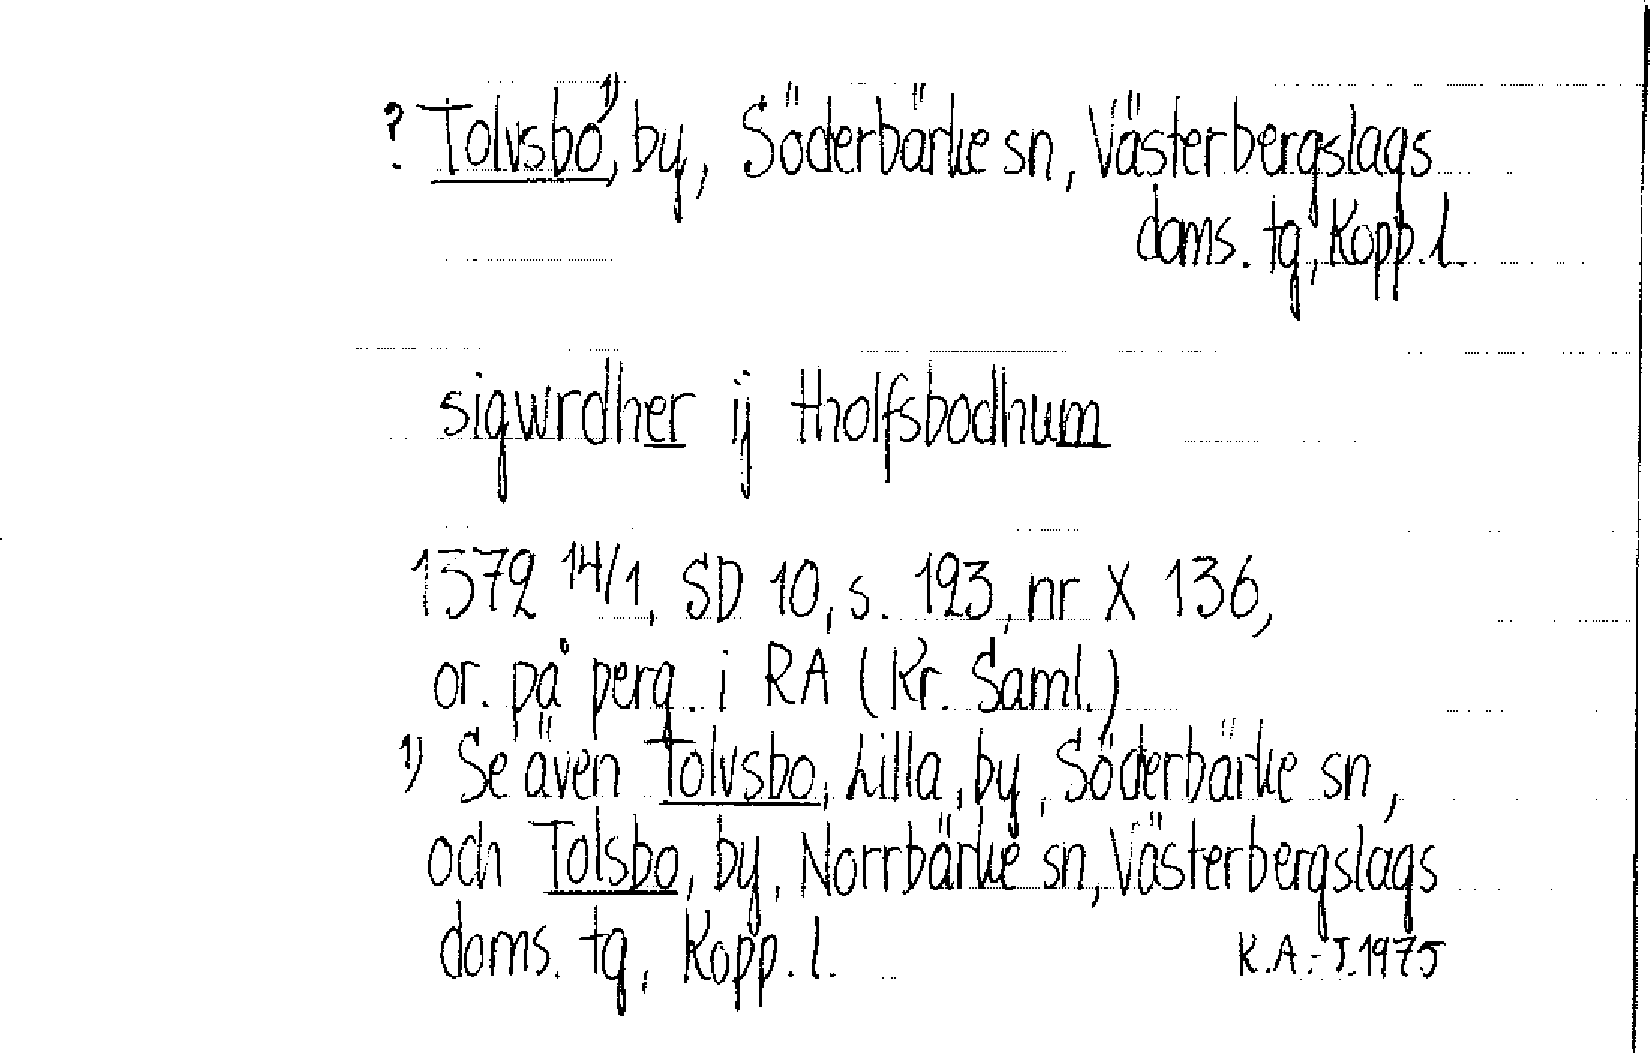 ? Tolvsbo¹⁾, by, Söderbärke sn, Västerbergslags
doms. tg, Kopp. l.
sigwrdher ij tholfsbodhum
1372 14/1, SD 10, s. 123, nr X 136,
or. på perg. i RA (Kr. Saml.)
1) Se även Tolvsbo, Lilla, by, Söderbärke sn,
och Tolsbo, by, Norrbärke sn, Västerbergslags
doms. tg, Kopp. l.
K.A.-J. 1975